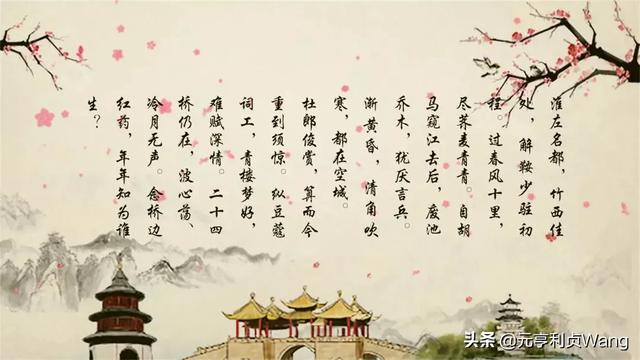 淮左名都，竹西佳
处，解鞍少驻初
程。过春风十里，
尽荠麦青青。自胡
马窥江去后，废池
乔木，犹厌言兵。
渐黄昏，清角吹
寒，都在空城。
杜郎俊赏，算而今
重到须惊。纵豆蔻
词工，青楼梦好，
难赋深情。二十四
桥仍在，波心荡、
冷月无声。念桥边
红药，年年知为谁
生？
头条@元亨利贞Wang